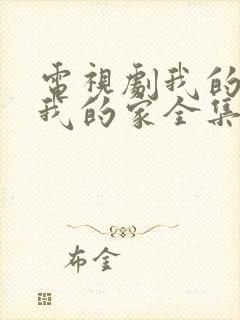 電視劇我的
我的家全集
布金